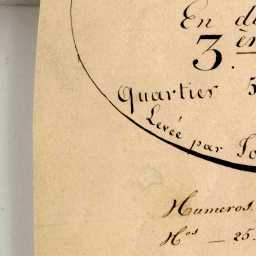 En d
3.èm
Quartier 5
Levée par Jo
Numeros.
Nos — 25